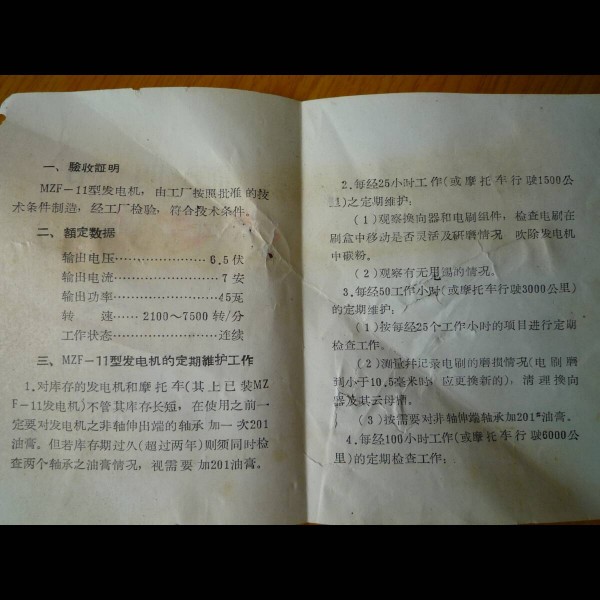 一、驗收証明
MZF－11型发电机，由工厂按照批准的技
术条件制造，经工厂检验，符合技术条件。
二、額定数据
输出电压……………… 6.5伏
输出电流………………… 7安
输出功率………………… 45瓦
转　　速…… 2100～7500 转/分
工作状态………………… 连续
三、MZF－11型发电机的定期维护工作
1.对库存的发电机和摩托车(其上已装MZ
F－11发电机)不管其库存长短，在使用之前一
定要对发电机之非轴伸出端的轴承加一次201
油膏。但若库存期过久(超过两年)则须同时检
查两个轴承之油膏情况，视需要加201油膏。
2.每经25小时工作(或摩托车行驶1500公
里)之定期维护：
(1)观察换向器和电刷组件，检查电刷在
刷盒中移动是否灵活及研磨情况　吹除发电机
中碳粉。
(2)观察有无甩锡的情况。
3.每经50工作小时(或摩托车行驶3000公里)
的定期维护：
(1)按每经25个工作小时的项目进行定期
检查工作。
(2)测量并记录电刷的磨损情况(电刷磨
到小于10.5毫米时　应更换新的)，清理换向
器及其云母槽。
(3)按需要对非轴伸端轴承加201#油膏。
4.每经100小时工作(或摩托车行驶6000公
里)的定期检查工作：